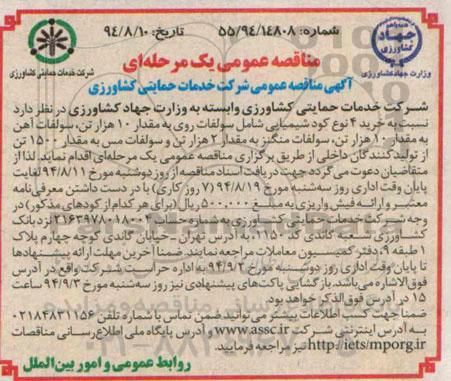 شماره: ۵۵/۹۴/۱۴۸۰۸
تاریخ: ۹۴/۸/۱۰
جهاد کشاورزی
وزارت جهاد کشاورزی
شرکت خدمات حمایتی کشاورزی
مناقصه عمومی یک مرحله‌ای
آگهی مناقصه عمومی شرکت خدمات حمایتی کشاورزی
شرکت خدمات حمایتی کشاورزی وابسته به وزارت جهاد کشاورزی در نظر دارد
نسبت به خرید ۴ نوع کود شیمیایی شامل سولفات روی به مقدار ۱۰ هزار تن، سولفات آهن
به مقدار ۱۰ هزار تن، سولفات منگنز به مقدار ۲ هزار تن و سولفات مس به مقدار ۱۵۰۰ تن
از تولیدکنندگان داخلی از طریق برگزاری مناقصه عمومی یک مرحله‌ای اقدام نماید. لذا از
متقاضیان دعوت می گردد جهت دریافت اسناد مناقصه از روز دوشنبه مورخ ۹۴/۸/۱۱ لغایت
پایان وقت اداری روز سه‌شنبه مورخ ۹۴/۸/۱۹ (۷ روز کاری) با در دست داشتن معرفی‌نامه
معتبر و ارائه فیش واریزی به مبلغ ۵۰۰,۰۰۰ ریال (برای هر کدام از کودهای مذکور) در
وجه شرکت خدمات حمایتی کشاورزی به شماره حساب ۲۱۶۳۹۷۸۰۱۸۰۰۴ نزد بانک
کشاورزی شعبه گاندی کد ۱۱۵۰، به آدرس تهران - خیابان گاندی کوچه چهارم پلاک
۱ طبقه ۹، دفتر کمیسیون معاملات مراجعه نمایند. ضمنا آخرین مهلت ارائه پیشنهادها
تا پایان وقت اداری روز دوشنبه مورخ ۹۴/۹/۲ به اداره حراست شرکت واقع در آدرس
فوق‌الاشاره می‌باشد. بازگشایی پاکت‌های پیشنهادی نیز روز سه‌شنبه مورخ ۹۴/۹/۳ ساعت
۱۵ در آدرس فوق الذکر خواهد بود.
ضمنا جهت کسب اطلاعات بیشتر می توانید ضمن تماس با شماره تلفن ۰۲۱۸۴۸۳۱۱۵۶
به آدرس اینترنتی شرکت www.assc.ir و آدرس پایگاه ملی اطلاع‌رسانی مناقصات
http//iets/mporg.ir نیز مراجعه فرمایید.
روابط عمومی و امور بین‌الملل